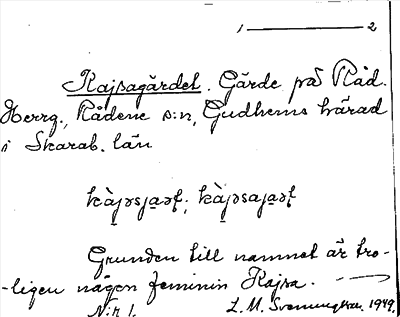 1 ——— 2
Kajsagärdet. Gärde på Råd.
Herrg., Rådene s:n, Gudhems härad
i Skarab. län
kàjəsjaət; kàjəsajaət
Grunden till namnet är tro-
-ligen någon feminin Kajsa.
N:r 1. L. M. Svenungsson. 1949.